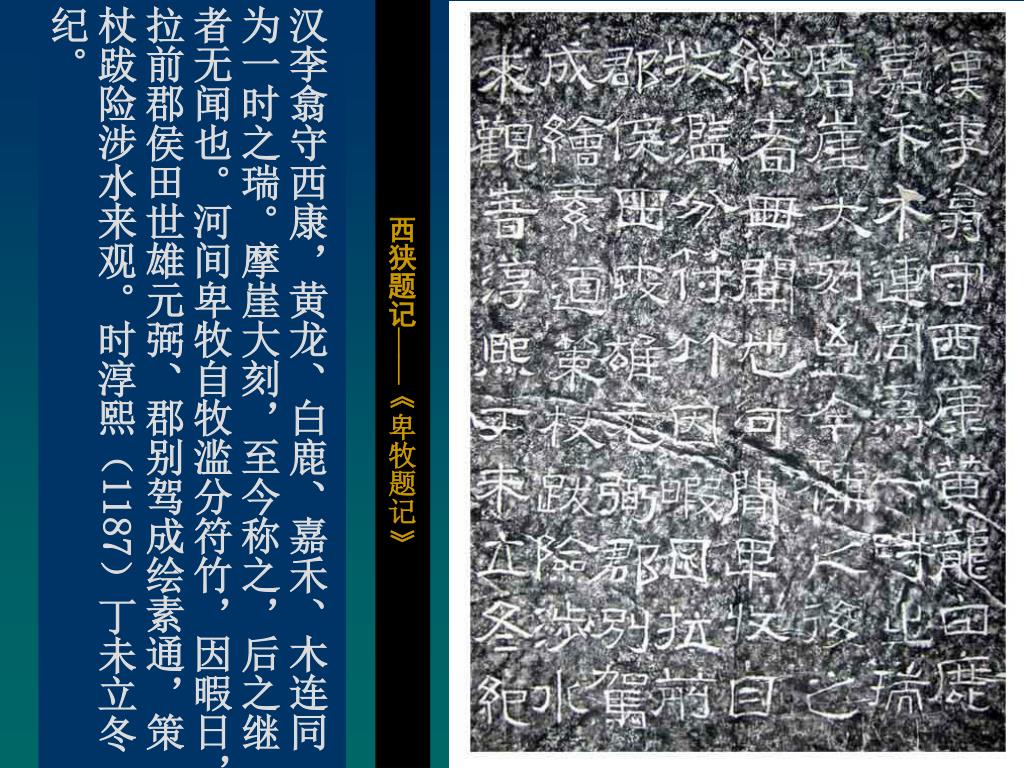 漢李翕守西康黄龍白鹿
嘉禾木連同爲一時之瑞
磨崖大刻至今稱之後之
繼者無聞也河間卑牧自
牧濫分符竹因暇日拉前
郡侯田世雄元弼郡別駕
成繪素通策杖跋險涉水
来觀旹淳熙丁未立冬紀
西狭题记——《卑牧题记》
汉李翕守西康，黄龙、白鹿、嘉禾、木连同
为一时之瑞。摩崖大刻，至今称之，后之继
者无闻也。河间卑牧自牧滥分符竹，因暇日，
拉前郡侯田世雄元弼、郡别驾成绘素通，策
杖跋险涉水来观。时淳熙（1187）丁未立冬
纪。